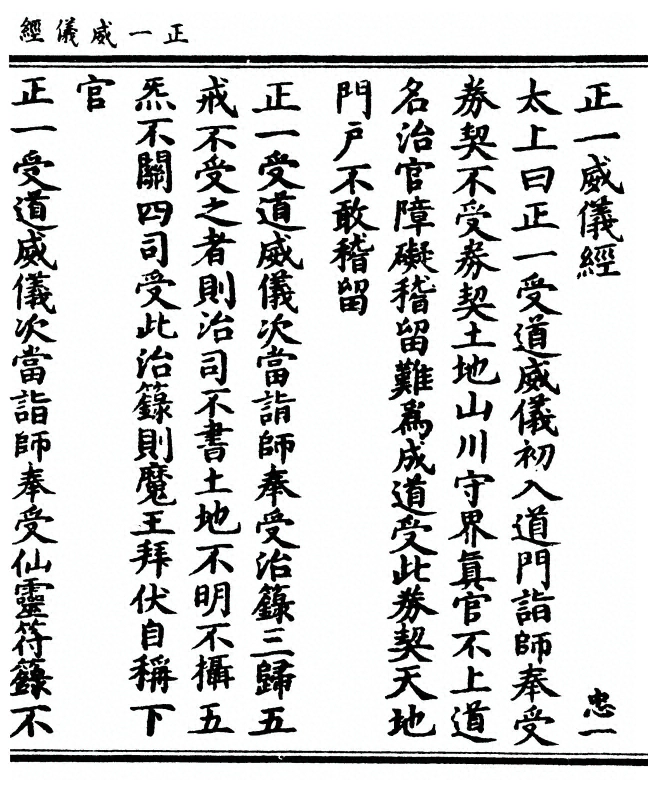 正一威儀經
正一威儀經 忠一
太上曰正一受道威儀初入道門詣師奉受
券契不受券契土地山川守界真官不上道
名治官障礙稽留難為成道受此券契天地
門戶不敢稽留
正一受道威儀次當詣師奉受治籙三歸五
戒不受之者則治司不書土地不明不攝五
炁不關四司受此治籙則魔王拜伏自稱下
官
正一受道威儀次當詣師奉受仙靈符籙不